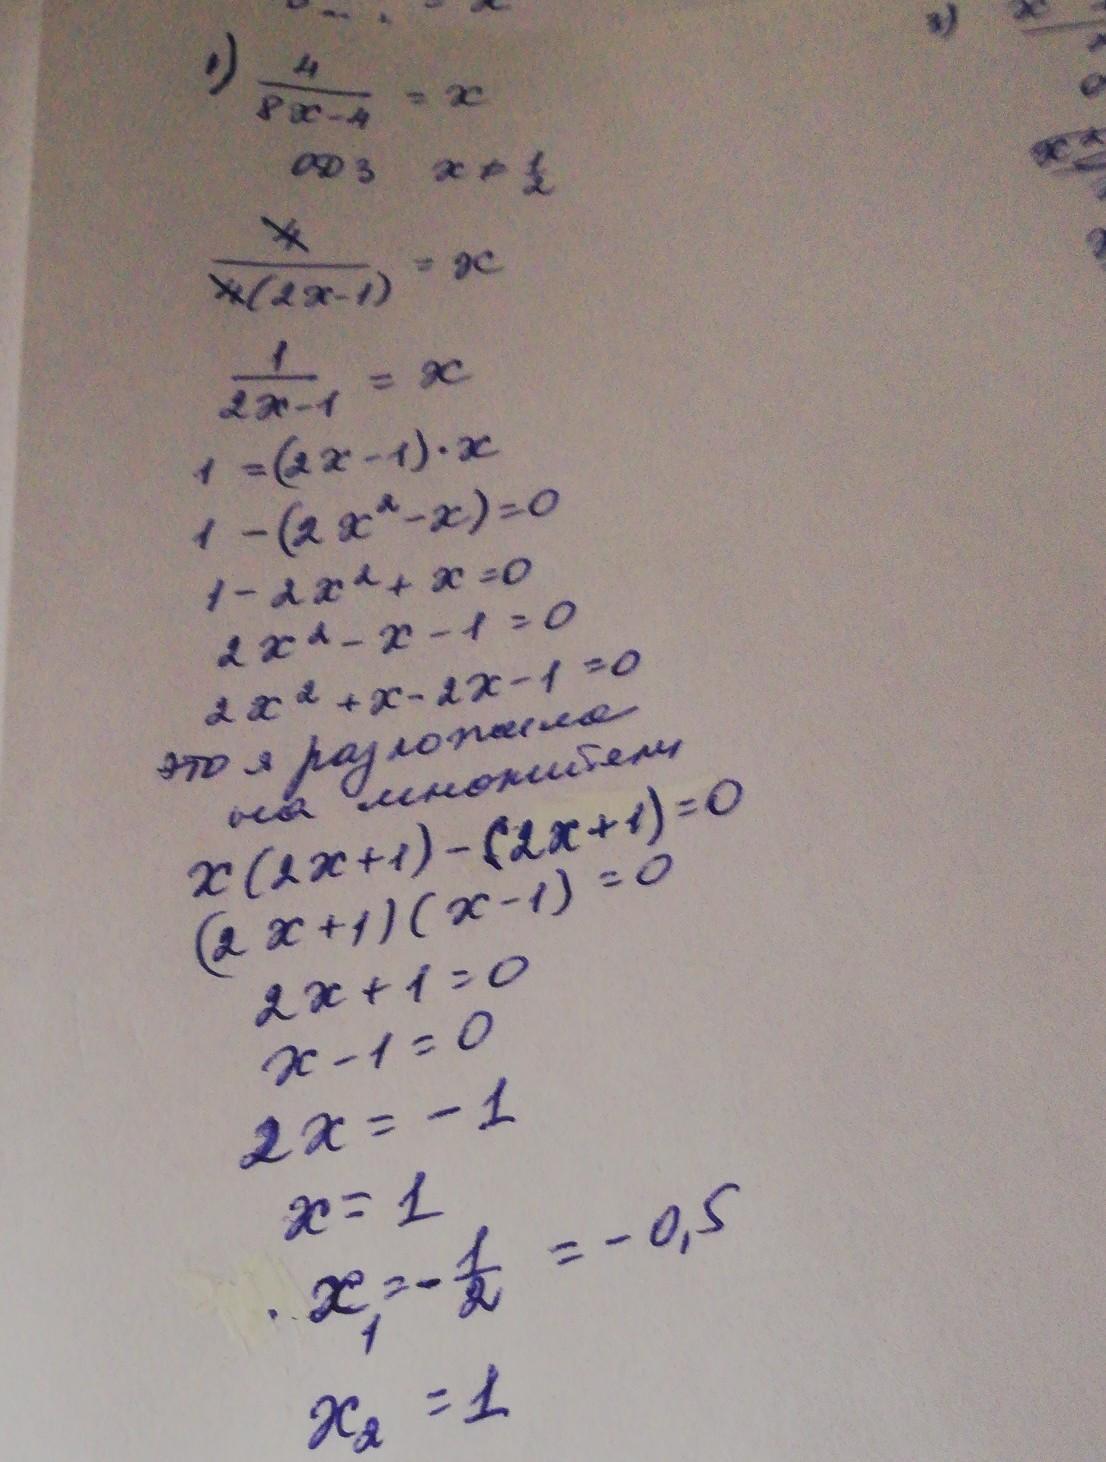 1) 4/(8x-4) = x
ОДЗ x ≠ 1/2
4/(4(2x-1)) = x
1/(2x-1) = x
1 = (2x-1)·x
1 - (2x² - x) = 0
1 - 2x² + x = 0
2x² - x - 1 = 0
2x² + x - 2x - 1 = 0
это я разложила
на множители
x(2x+1) - (2x+1) = 0
(2x+1)(x-1) = 0
2x + 1 = 0
x - 1 = 0
2x = -1
x = 1
x₁ = -1/2 = -0,5
x₂ = 1